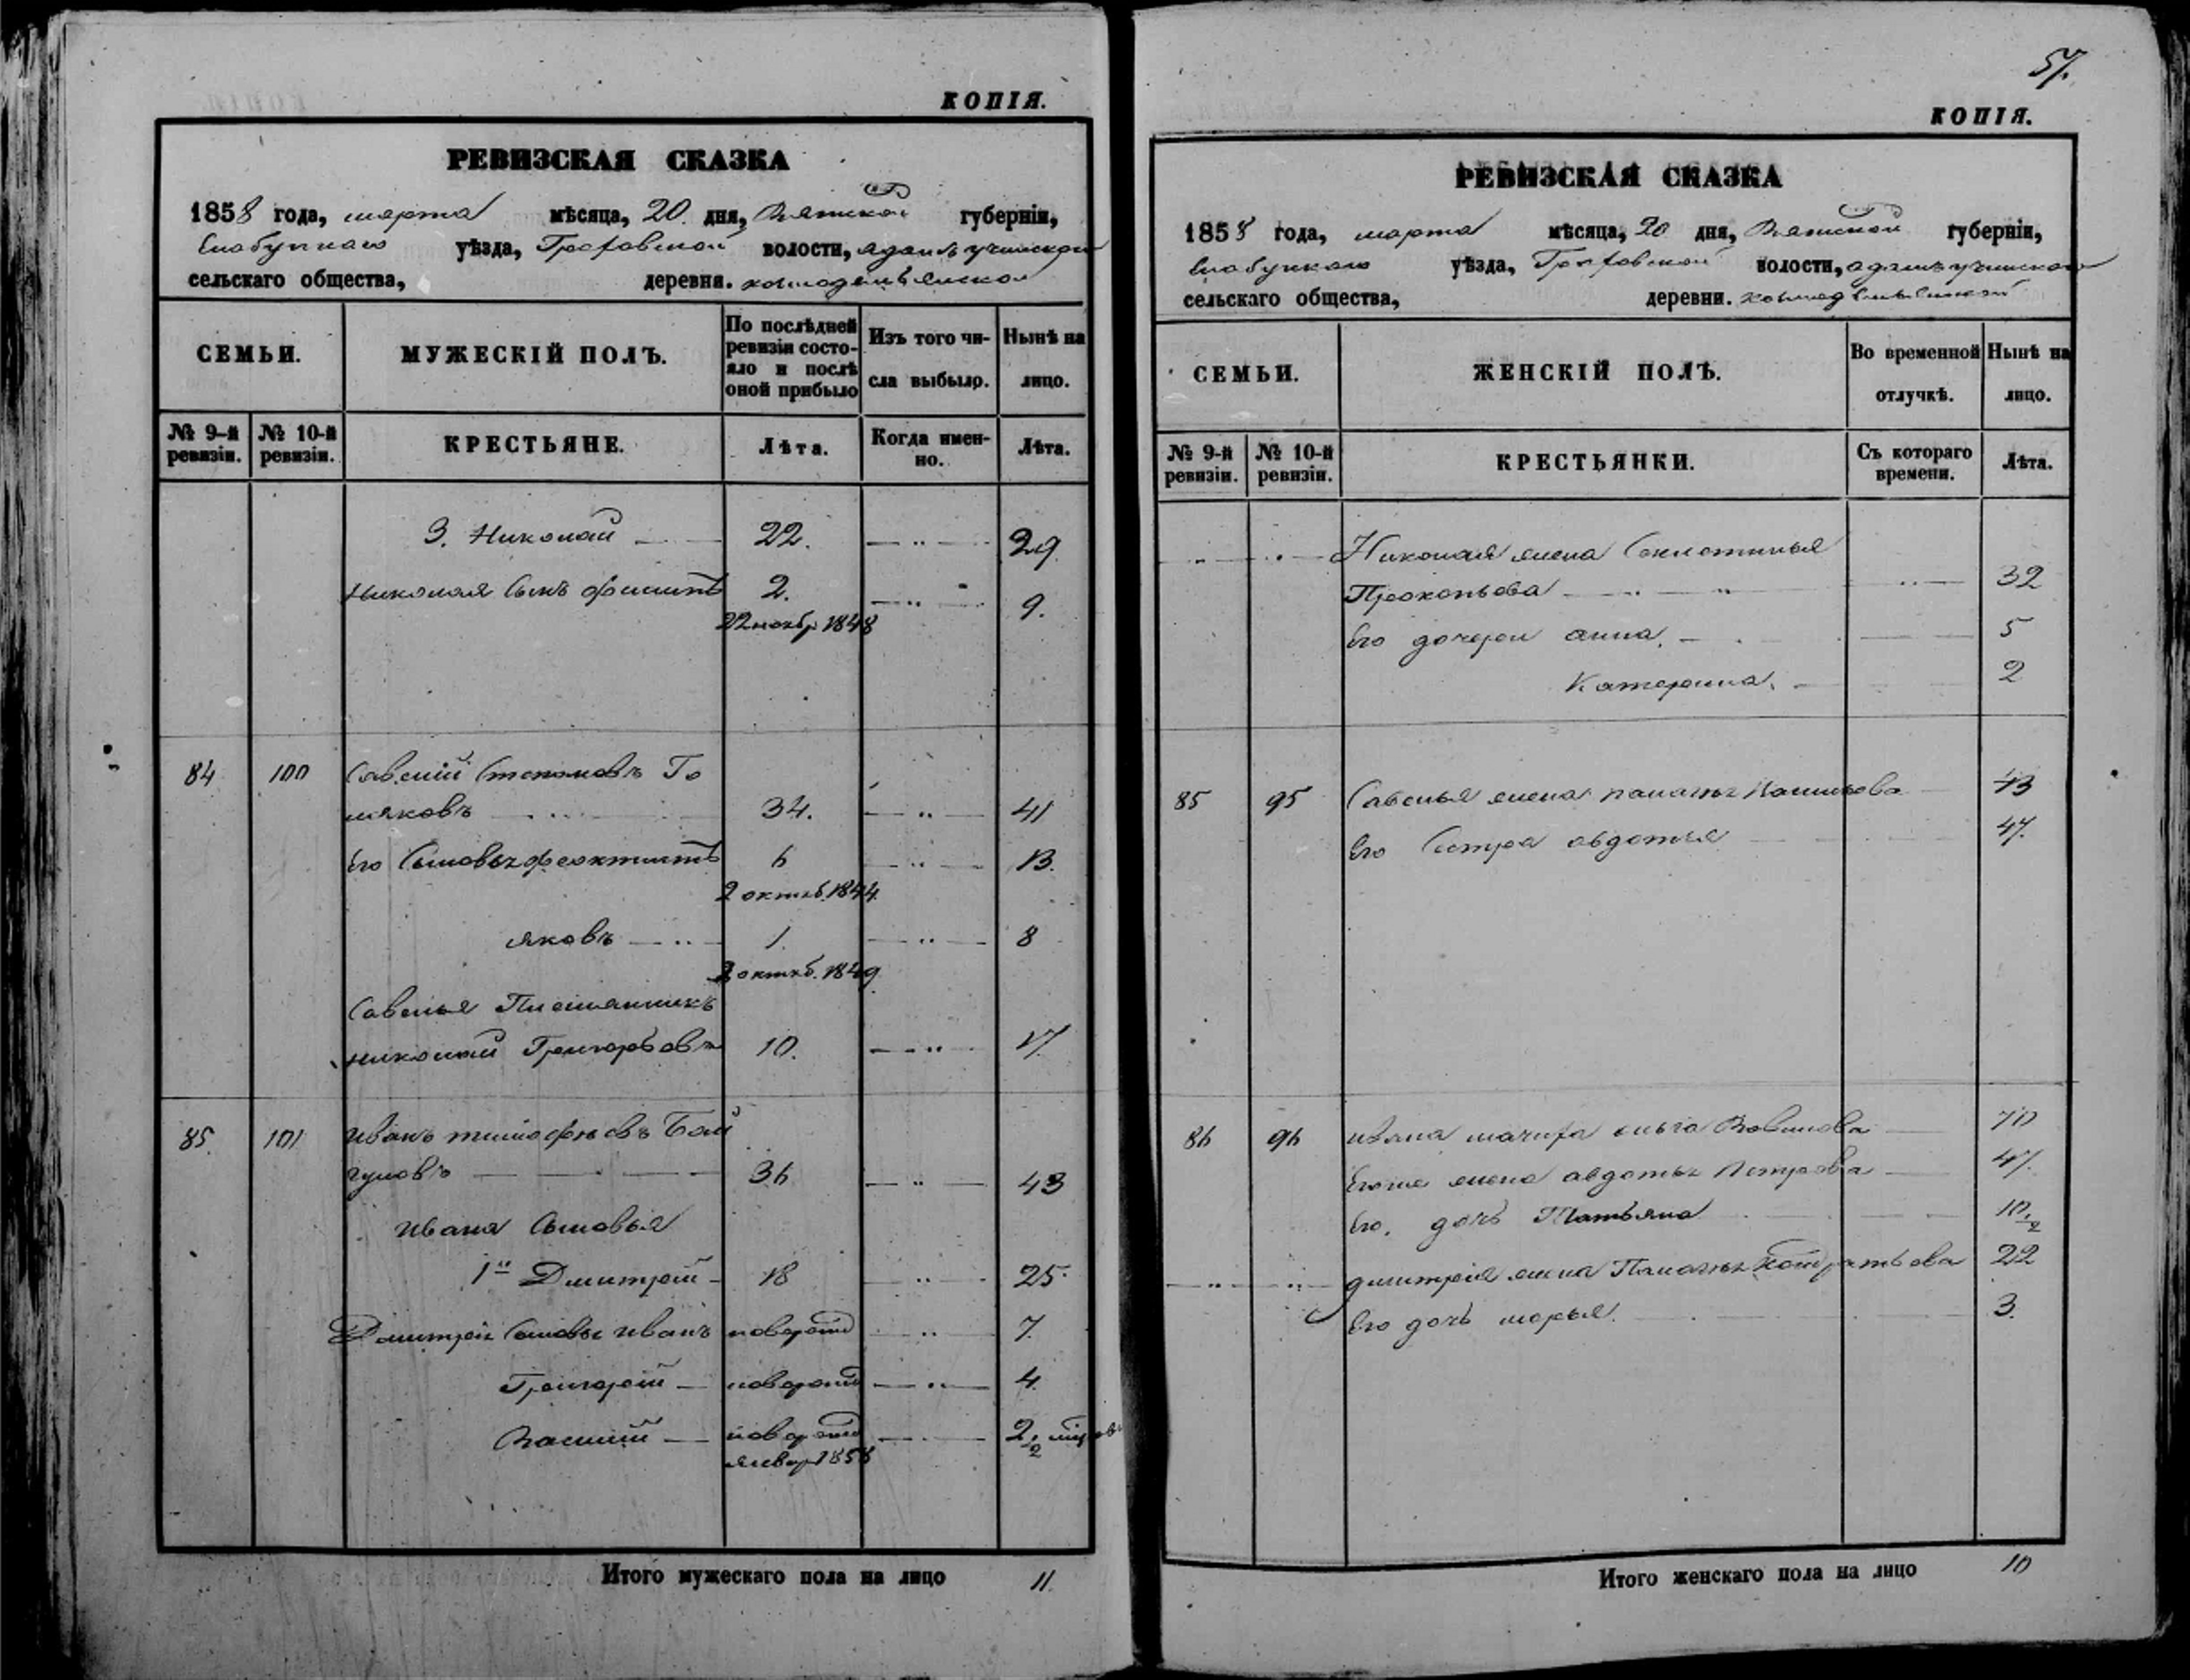 КОПІЯ.
РЕВИЗСКАЯ СКАЗКА
1858 года, марта мѣсяца, 20 дня, Вятской губерніи,
Елабугкаго уѣзда, Граховской волости,
сельскаго общества, деревни.
СЕМЬИ.
МУЖЕСКІЙ ПОЛЪ.
По послѣдней ревизіи состояло и послѣ оной прибыло
Изъ того числа выбыло.
Нынѣ на лицо.
№ 9-й ревизіи.
№ 10-й ревизіи.
КРЕСТЬЯНЕ.
Лѣта.
Когда именно.
Лѣта.
3. Николай 22. 29
Николая Сынъ Филипъ 2. 9.
22 ноябр 1848
84 100 Савелій Степановъ
34. 41
Его Сыновья Феоктистъ 6 13.
2 октяб. 1844
яковъ 1. 8
октяб. 1849
Савелья Племянникъ
николай Григорьевъ 10. 17.
85. 101 иванъ тимофѣевъ Бай
гуловъ 36 43
ивана Сыновья
1й Дмитрей 18 25.
Дмитрея Сыновья иванъ новорожд 7.
Григорей новорожд 4.
Василій новорожд 2
январ 1858
Итого мужескаго пола на лицо 11.
57.
КОПІЯ.
РЕВИЗСКАЯ СКАЗКА
1858 года, марта мѣсяца, 20 дня, Вятской губерніи,
Елабугкаго уѣзда, Граховской волости,
сельскаго общества, деревни.
СЕМЬИ.
ЖЕНСКІЙ ПОЛЪ.
Во временной отлучкѣ.
Нынѣ на лицо.
№ 9-й ревизіи.
№ 10-й ревизіи.
КРЕСТЬЯНКИ.
Съ котораго времени.
Лѣта.
Николая жена
Прокопьева 32
Его дочери анна. 5
Катерина. 2
85 95 Савелья жена 43
Его Сестра авдотья 47.
86 96 ивана мачиха 70
Егоже жена авдотья Петрова 47.
Его. дочь Татьяна 10
дмитрея жена 22
Его дочь марья. 3.
Итого женскаго пола на лицо 10